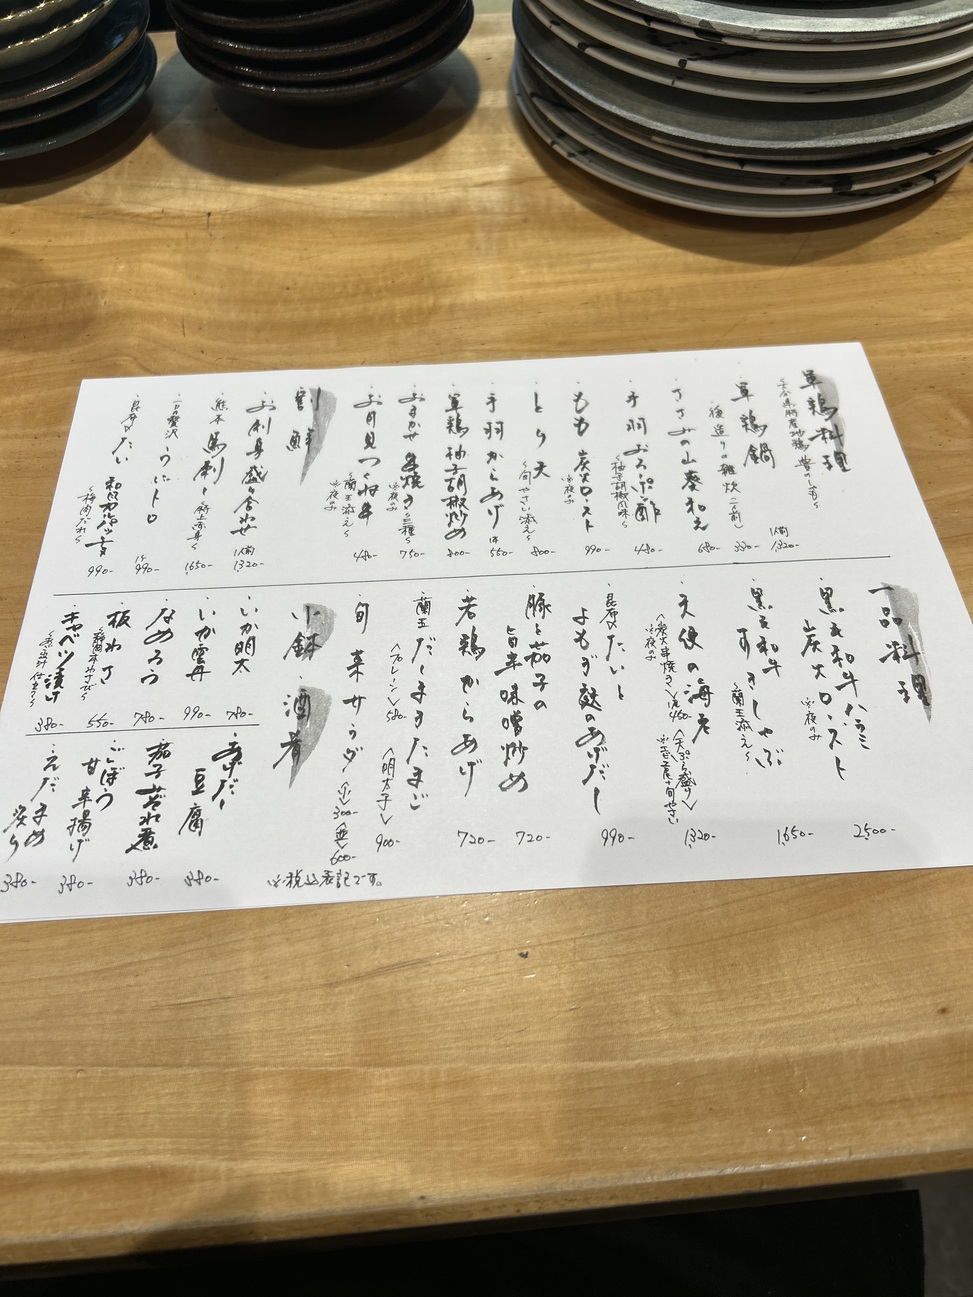 軍鶏料理
軍鶏鍋
1人前
1,320-
後造りの雑炊(一人前)
330-
ささみの山葵和え
680-
手羽おろしポン酢
〜柚子胡椒風味〜
480-
もも炭火ロースト
※夜のみ
990-
とり天
〜旬やさい添え〜
800-
手羽からあげ
550-
軍鶏柚子胡椒炒め
800-
おまかせ串焼き〜三種〜
※夜のみ
750-
お月見つくね串
〜蘭王添え〜
※夜のみ
480-
割鮮
お刺身盛り合わせ
1人前
1,320-
熊本馬刺し
〜特上赤身〜
1,650-
一口の贅沢
うにトロ
990-
昆布〆たい
和風カルパッチョ
〜梅肉だれ〜
990-
一品料理
黒毛和牛ハラミ
炭火ロースト
※夜のみ
2,500-
黒毛和牛
すきしゃぶ
〜蘭王添え〜
1,650-
天使の海老
〈炭火串焼き〉
450-
※夜のみ
〈天ぷら盛り〉
1,320-
昆布〆たいと
よもぎ麩のあげだし
990-
豚と茄子の
旨辛味噌炒め
720-
若鶏からあげ
720-
蘭王だしまきたまご
〈プレーン〉580-
〈明太子〉900-
旬菜サラダ
〈小〉300-
〈並〉600-
小鉢
酒肴
いか明太
780-
いか雲丹
990-
なめろう
780-
板わさ
〜静岡本わさび〜
550-
キャベツ漬け
380-
あげだし
豆腐
380-
茄子
煮
380-
ごぼう
甘辛揚げ
380-
えだまめ
380-
※税込表記です。